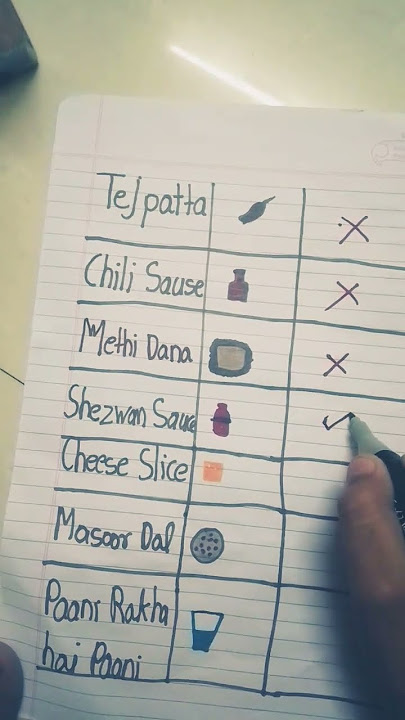 Tejpatta
Chili Sause
Methi Dana
Shezwan Saus
Cheese Slice
Masoor Dal
Paani Rakha
hai Paani